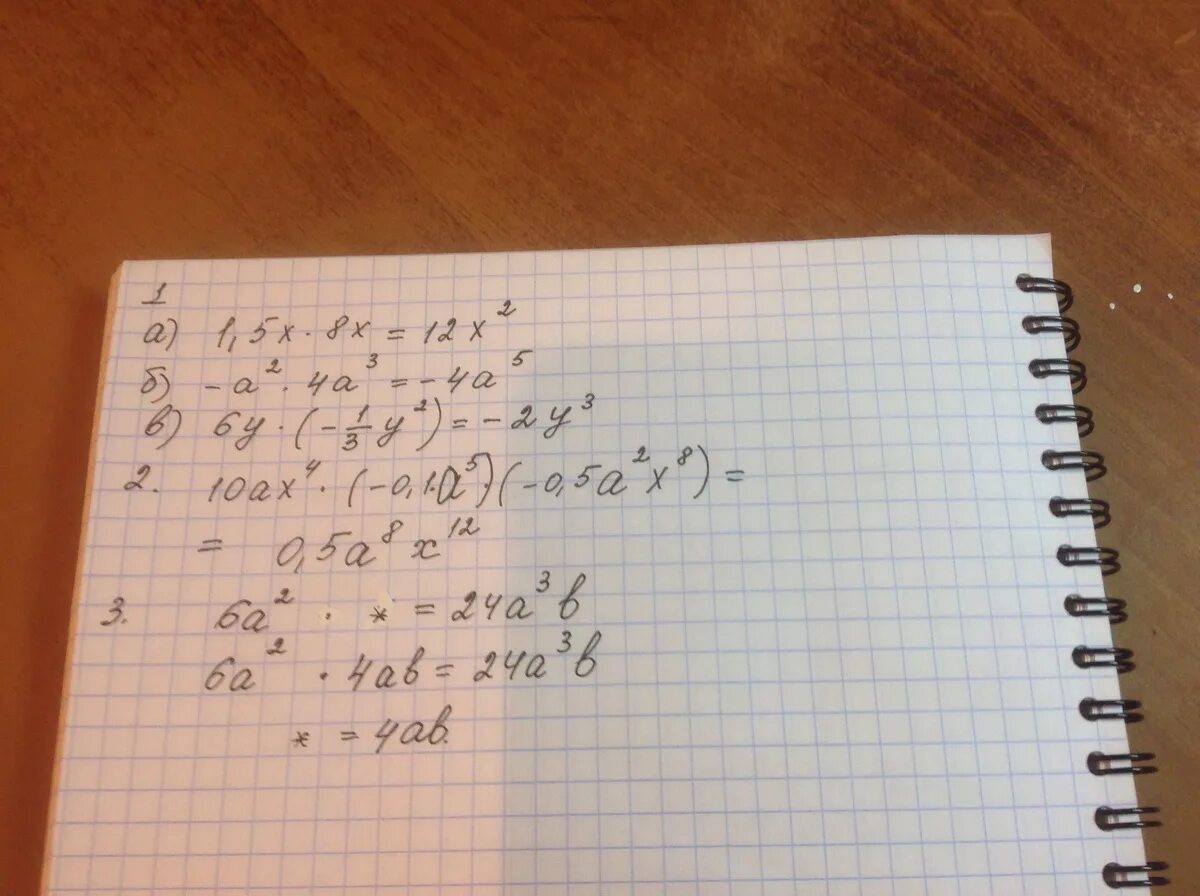 1
а) 1,5x · 8x = 12x²
б) -a² · 4a³ = -4a⁵
в) 6y · (-1/3 y²) = -2y³
2. 10ax⁴ · (-0,1·a⁵)·(-0,5a²x⁸) =
= 0,5a⁸x¹²
3. 6a² · * = 24a³b
6a² · 4ab = 24a³b
* = 4ab.